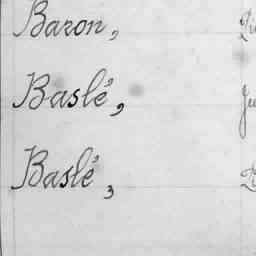 Baron,
Baslé,
Baslé,